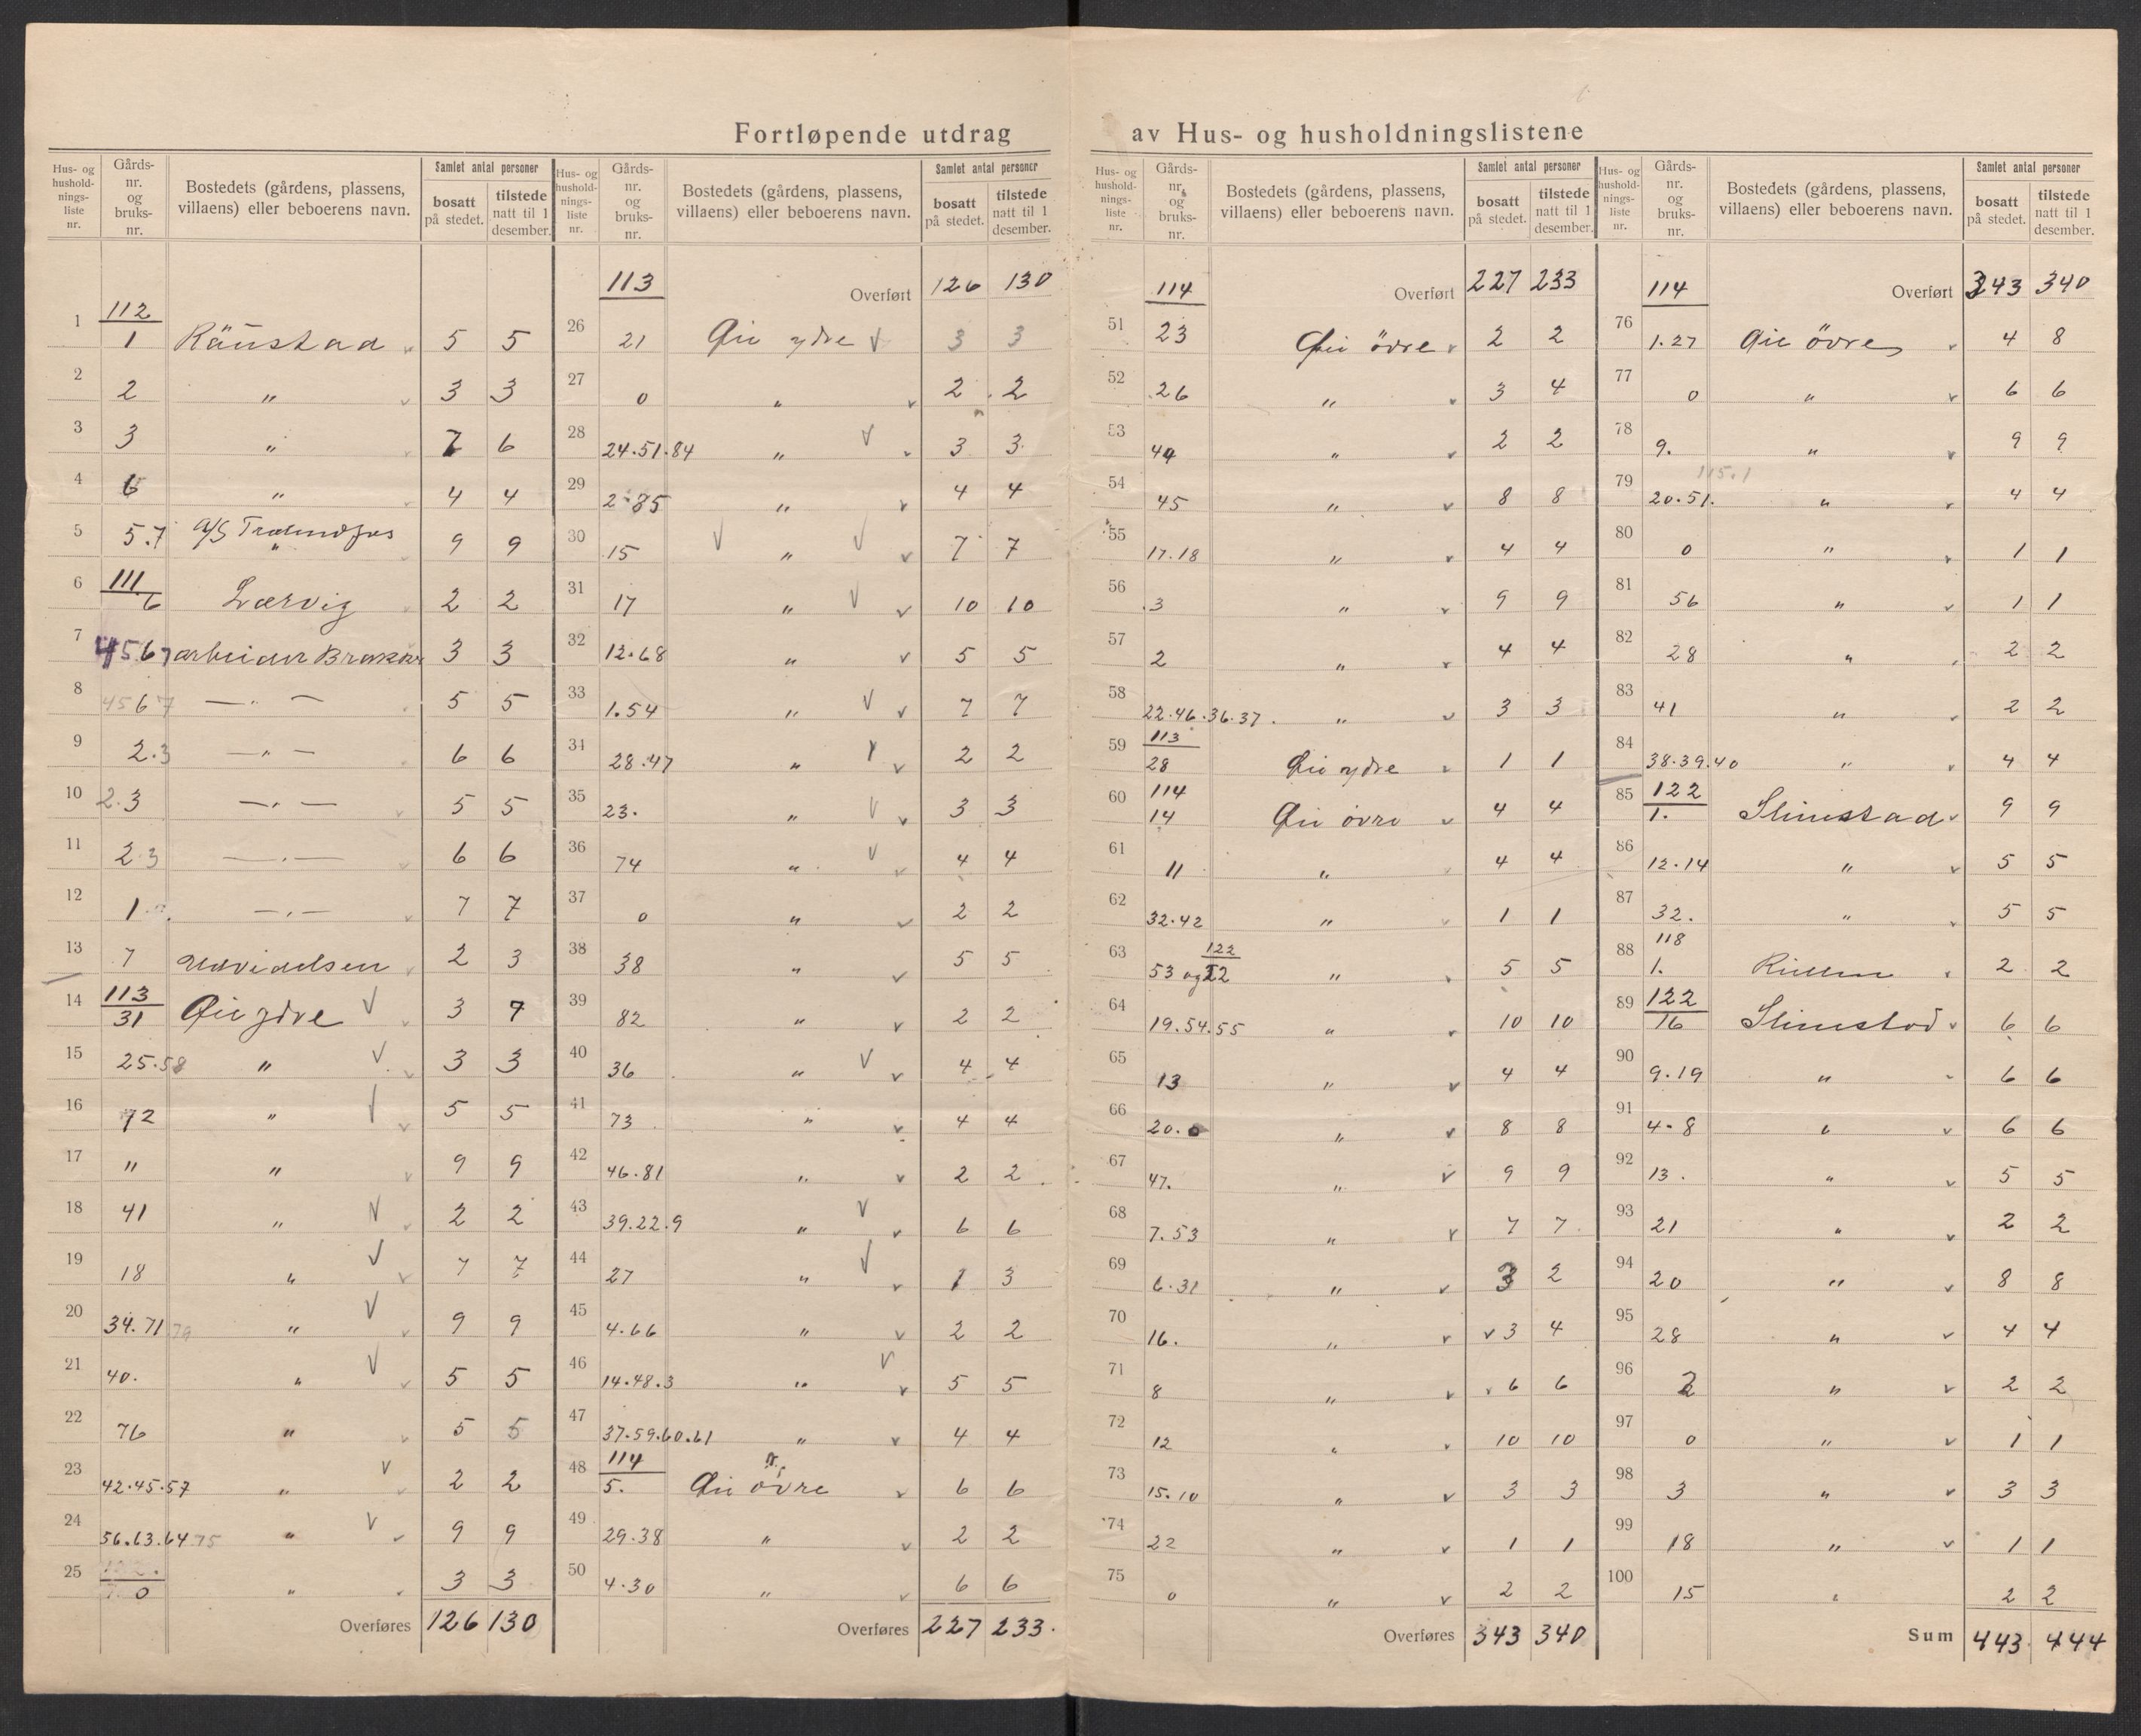 Fortløpende utdrag av Hus- og husholdningslistene
Hus- og hushold-nings-liste nr. | Gårds-nr. og bruks-nr. | Bostedets (gårdens, plassens, villaens) eller beboerens navn. | Samlet antal personer | bosatt på stedet. | tilstede natt til 1 desember.
112
1 1 Rånstad 5 5
2 2 " 3 3
3 3 " 7 6
4 6 " 4 4
5 5.7 A/S " 9 9
6 111/6 Lærvig 2 2
7 4567 arbeider 3 3
8 4567 —"— 5 5
9 2.3 —"— 6 6
10 2.3 —"— 5 5
11 2.3 —"— 6 6
12 1 —"— 7 7
13 7 Udvidelsen 2 3
14 113/31 Øie ydre 3 7
15 25.58 " 3 3
16 72 " 5 5
17 " " 9 9
18 41 " 2 2
19 18 " 7 7
20 34.71 79 " 9 9
21 40. " 5 5
22 76 " 5 5
23 42.45.57 " 2 2
24 56.63.64.75 " 9 9
25 0 " 3 3
Overføres 126 130
Hus- og hushold-nings-liste nr. | Gårds-nr. og bruks-nr. | Bostedets (gårdens, plassens, villaens) eller beboerens navn. | Samlet antal personer | bosatt på stedet. | tilstede natt til 1 desember.
113 Overført 126 130
26 21 Øie ydre 3 3
27 0 " 2 2
28 24.51.84 " 3 3
29 2.85 " 4 4
30 15 " 7 7
31 17 " 10 10
32 12.68 " 5 5
33 1.54 " 7 7
34 28.47 " 2 2
35 23. " 3 3
36 74 " 4 4
37 0 " 2 2
38 38 " 5 5
39 82 " 2 2
40 36 " 4 4
41 73 " 4 4
42 46.81 " 2 2
43 39.22.9 " 6 6
44 27 " 1 3
45 4.66 " 2 2
46 14.48.3 " 5 5
47 37.59.60.61 " 4 4
48 114/5. Øie øvre 6 6
49 29.38 " 2 2
50 4.30 " 6 6
Overføres 227 233.
Hus- og hushold-nings-liste nr. | Gårds-nr. og bruks-nr. | Bostedets (gårdens, plassens, villaens) eller beboerens navn. | Samlet antal personer | bosatt på stedet. | tilstede natt til 1 desember.
114 Overført 227 233
51 23 Øie övre 2 2
52 26 " 3 4
53 44 " 2 2
54 45 " 8 8
55 17.18 " 4 4
56 3 " 9 9
57 2 " 4 4
58 22.46.36.37. " 3 3
59 113/28 Øie ydre 1 1
60 114/14 Øie övre 4 4
61 11 " 4 4
62 32.42 " 1 1
63 53 og 122/22 " 5 5
64 19.54.55 " 10 10
65 13 " 4 4
66 20.0 " 8 8
67 47. " 9 9
68 7.53 " 7 7
69 6.31 " 3 2
70 16. " 3 4
71 8 " 6 6
72 12 " 10 10
73 15.10 " 3 3
74 22 " 1 1
75 0 " 2 2
Overføres 343 340
Hus- og hushold-nings-liste nr. | Gårds-nr. og bruks-nr. | Bostedets (gårdens, plassens, villaens) eller beboerens navn. | Samlet antal personer | bosatt på stedet. | tilstede natt til 1 desember.
114 Overført 343 340
76 1.27 Øie övre 4 8
77 0 " 6 6
78 9. " 9 9
115.1
79 20.51. " 4 4
80 0 " 1 1
81 56 " 1 1
82 28 " 2 2
83 41 " 2 2
84 38.39.40 " 4 4
85 122/1. Slimestad 9 9
86 12.14 " 5 5
87 32. " 5 5
88 118/1. 2 2
89 122/16 Slimestad 6 6
90 9.19 " 6 6
91 4-8 " 6 6
92 13. " 5 5
93 21 " 2 2
94 20 " 8 8
95 28 " 4 4
96 2 " 2 2
97 0 " 1 1
98 3 " 3 3
99 18 " 1 1
100 15 " 2 2
Sum 443 444